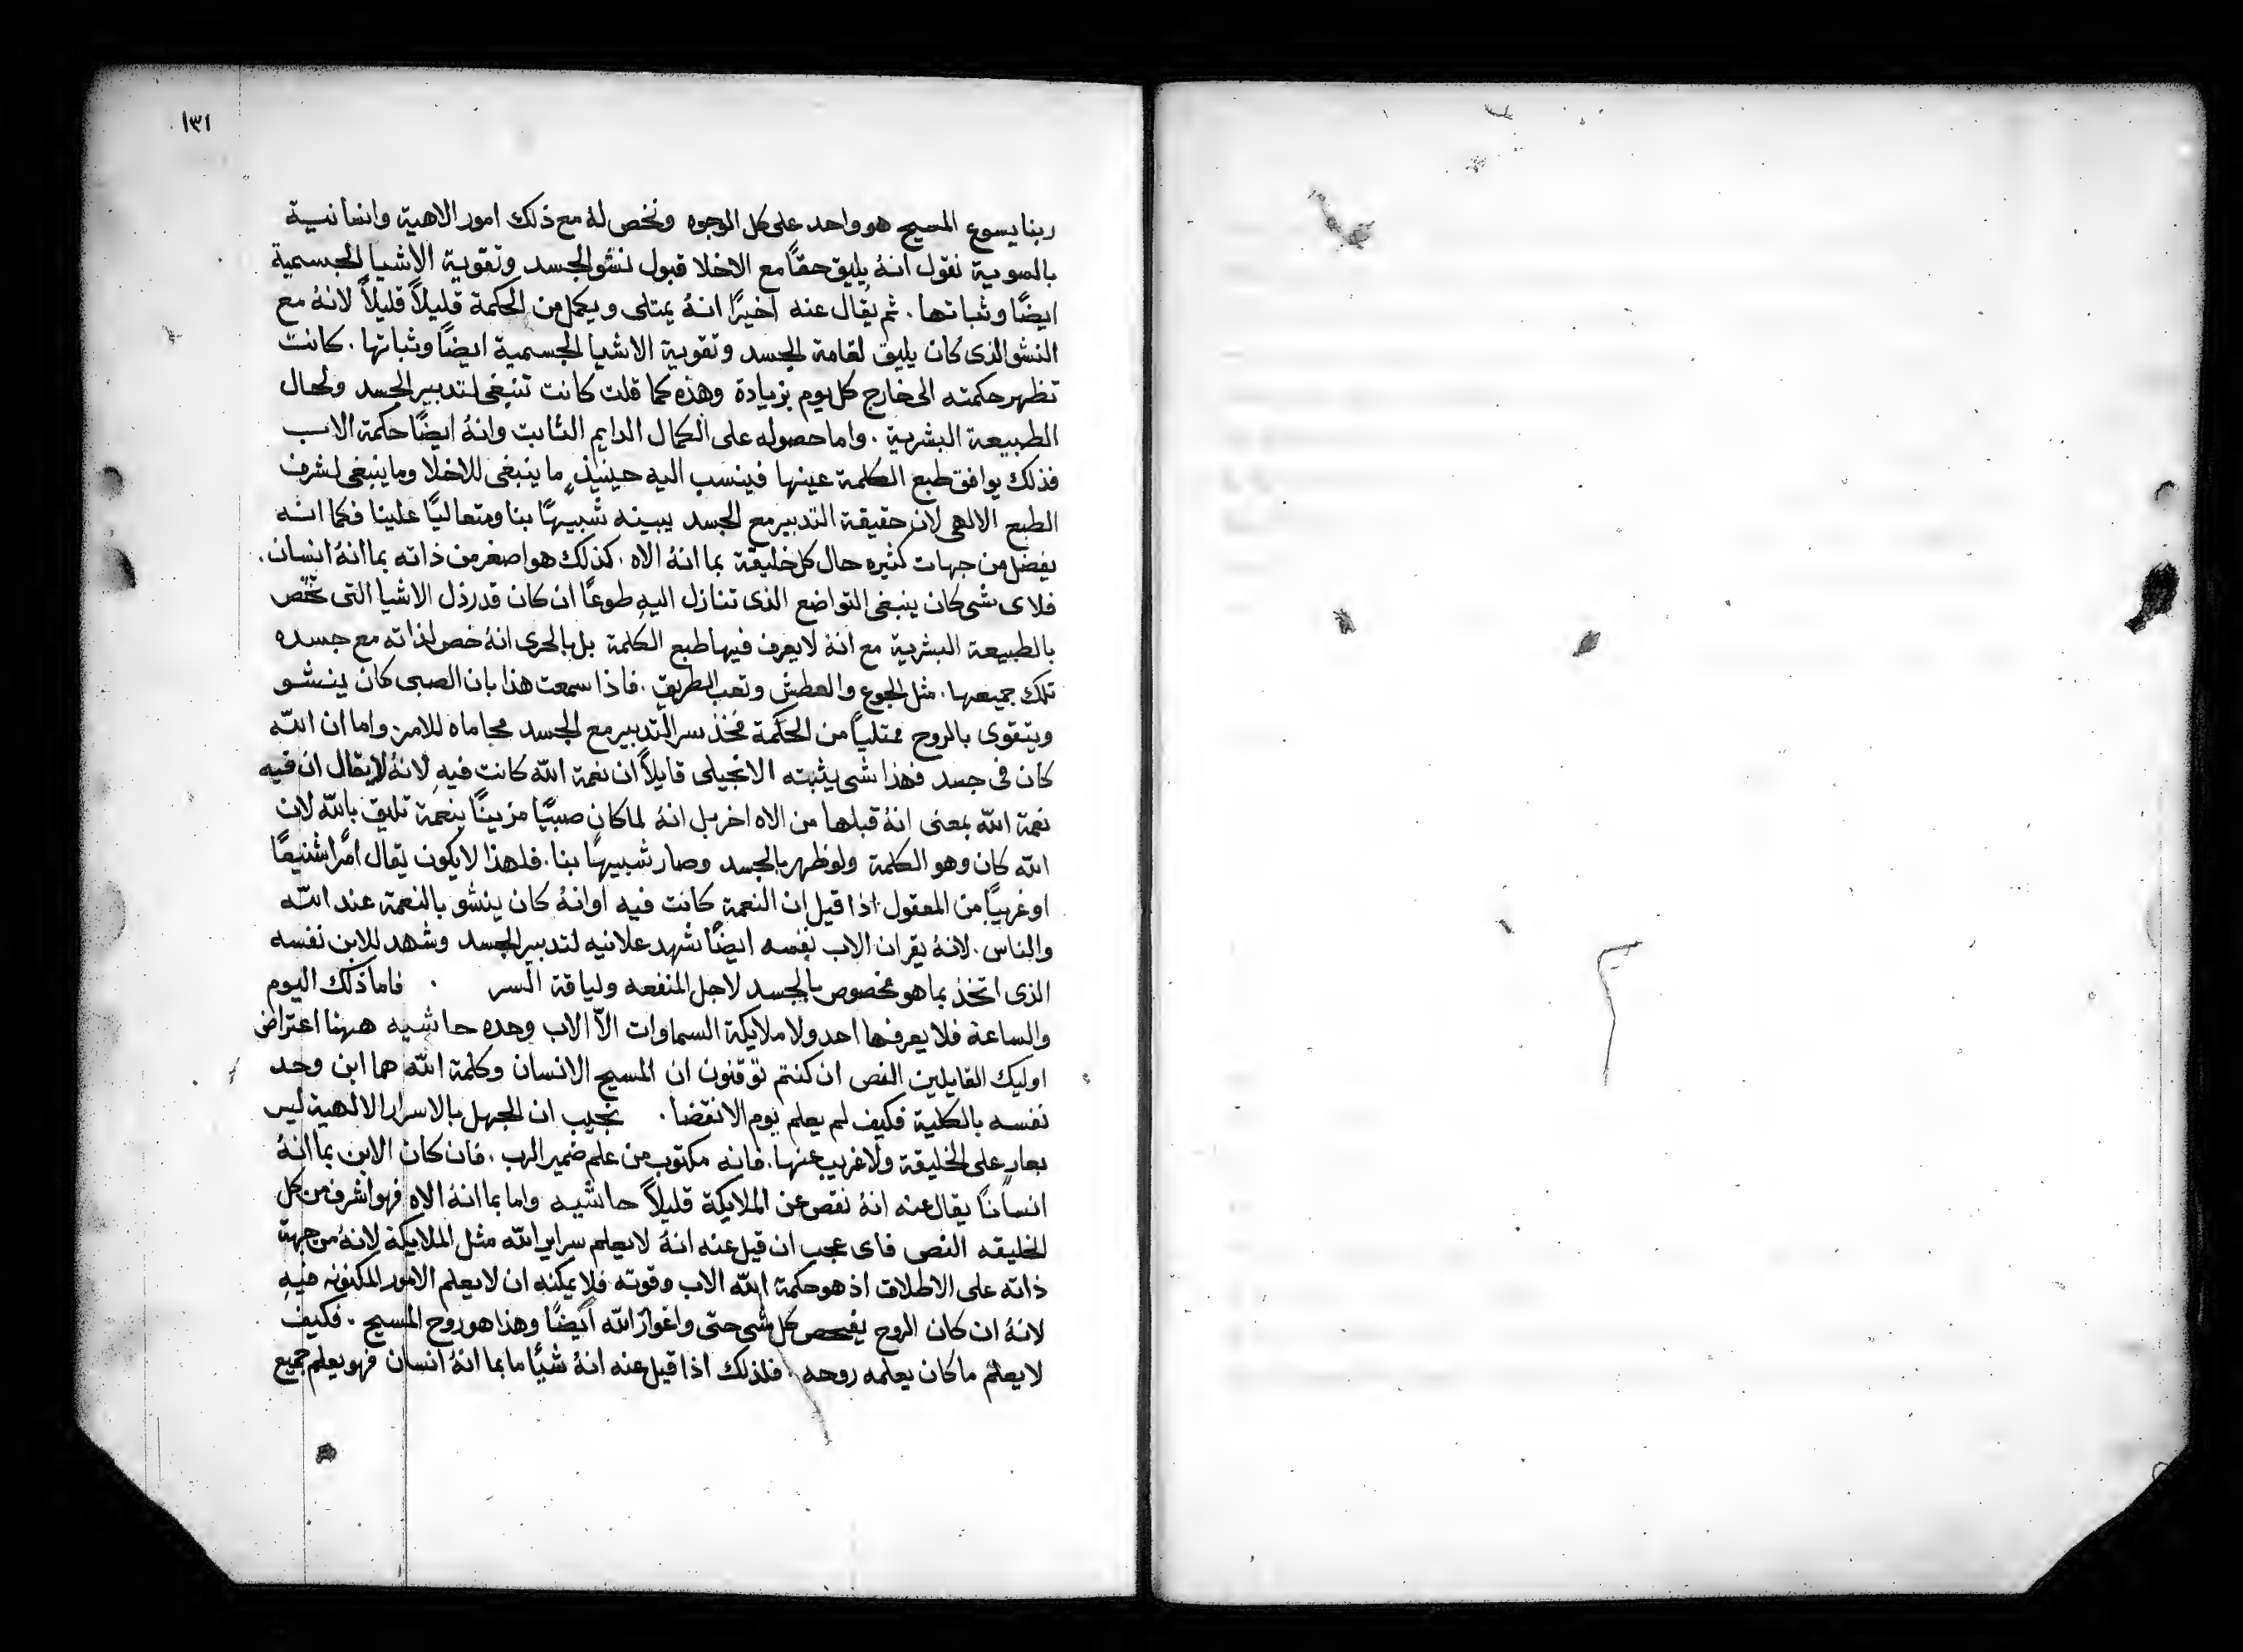 ١٣١
ربنا يسوع المسيح هو واحد على كل الوجوه ونخص له مع ذلك امور الاهية وانسانية
بالسوية نقول انهُ يليق حقًا مع الاخلا قبول نشو الجسد وتقوية الاشيا الجسمية
ايضًا وثباتها . ثم يقال عنه اخيرًا انهُ يمتلى ويكمل من الحكمة قليلاً قليلاً لانهُ مع
النشو الذى كان يليق لقامة الجسد وتقوية الاشيا الجسمية ايضًا وثباتها . كانت
تظهر حكمته الى خارج كل يوم بزيادة وهذه كما قلت كانت تنبغى لتدبير الجسد ولحال
الطبيعة البشرية . واما حصوله على الكمال الدايم الثابت وانهُ ايضًا حكمة الاب
فذلك يوافق طبع الكلمة عينها فينسب اليه حينيذٍ ما ينبغى للاخلا وما ينبغى لشرف
الطبع الالهى لان حقيقة التدبير مع الجسد يبينه شبيهًا بنا ومتعاليًا علينا فكما انه
يفضل من جهات كثيره حال كل خليقة بما انهُ الاه . كذلك هو اصغر من ذاته بما انهُ انسان .
فلاى شى كان ينبغى التواضع الذى تنازل اليهِ طوعًا ان كان قد رذل الاشيا التى تخص
بالطبيعة البشرية مع انهُ لا يعرف فيها طبع الكلمة بل بالحرى انهُ خص لذاته مع جسده
تلك جميعها . مثل الجوع والعطش وتعب الطريق . فاذا سمعت هذا بان الصبى كان ينشو
ويتقوى بالروح ممتليًا من الحكمة فخذ سر التدبير مع الجسد محاماه للامر واما ان الله
كان فى جسد فهذا شى يثبته الانجيلى قايلاً ان نعمة الله كانت فيهِ لانهُ لا يقال ان فيه
نعمة الله بمعنى انهُ قبلها من الاه اخر بل انهُ لما كان صبيًا مزينًا بنعمة تليق بالله لان
الله كان وهو الكلمة ولو ظهر بالجسد وصار شبيهًا بنا . فلهذا لا يكون يقال امرًا شنيعًا
او غريبًا من المعقول اذا قيل ان النعمة كانت فيه او انهُ كان ينشو بالنعمة عند الله
والناس . لانهُ يقر ان الاب نفسه ايضًا شهد علانيه لتدبير الجسد وشهد للابن نفسه
الذى اتخذ بما هو مخصوص بالجسد لاجل المنفعه ولياقة السر . فاما ذلك اليوم
والساعة فلا يعرفها احد ولا ملايكة السماوات الاّ الاب وحده حاشيه ههنا اعتراض
اوليك القايلين النص ان كنتم توقنون ان المسيح الانسان وكلمة الله هما ابن وحد
نفسه بالكلية فكيف لم يعلم يوم الانقضا . نجيب ان الجهل بالاسرار الالهية ليس
بعارٍ على الخليقة ولا غريب عنها . فانه مكتوب من علم ضمير الرب . فان كان الابن بما انهُ
انسانًا يقال عنه انهُ نقص عن الملايكة قليلاً حاشيه واما بما انهُ الاه فهو اشرف من كل
الخليقه النص فاى عجب ان قيل عنه انهُ لا يعلم سراير الله مثل الملايكة لانهُ من جهة
ذاته على الاطلاق اذ هو حكمة الله الاب وقوته فلا يمكنه ان لا يعلم الامور المكنونه فيهِ
لانهُ ان كان الروح يفحص كل شى حتى واغوار الله ايضًا وهذا هو روح المسيح . فكيف
لا يعلم ما كان يعلمه روحه . فلذلك اذا قيل عنه انهُ شيًا ما بما انهُ انسان فهو يعلم جميع